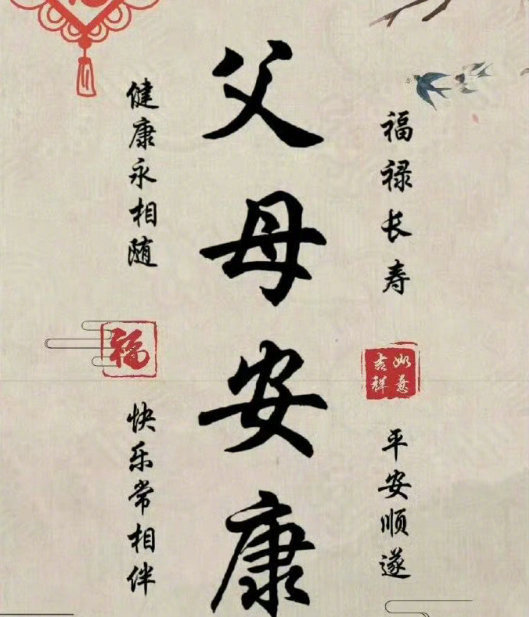 父母安康
福禄长寿
如意吉祥
平安顺遂
健康永相随
福
快乐常相伴